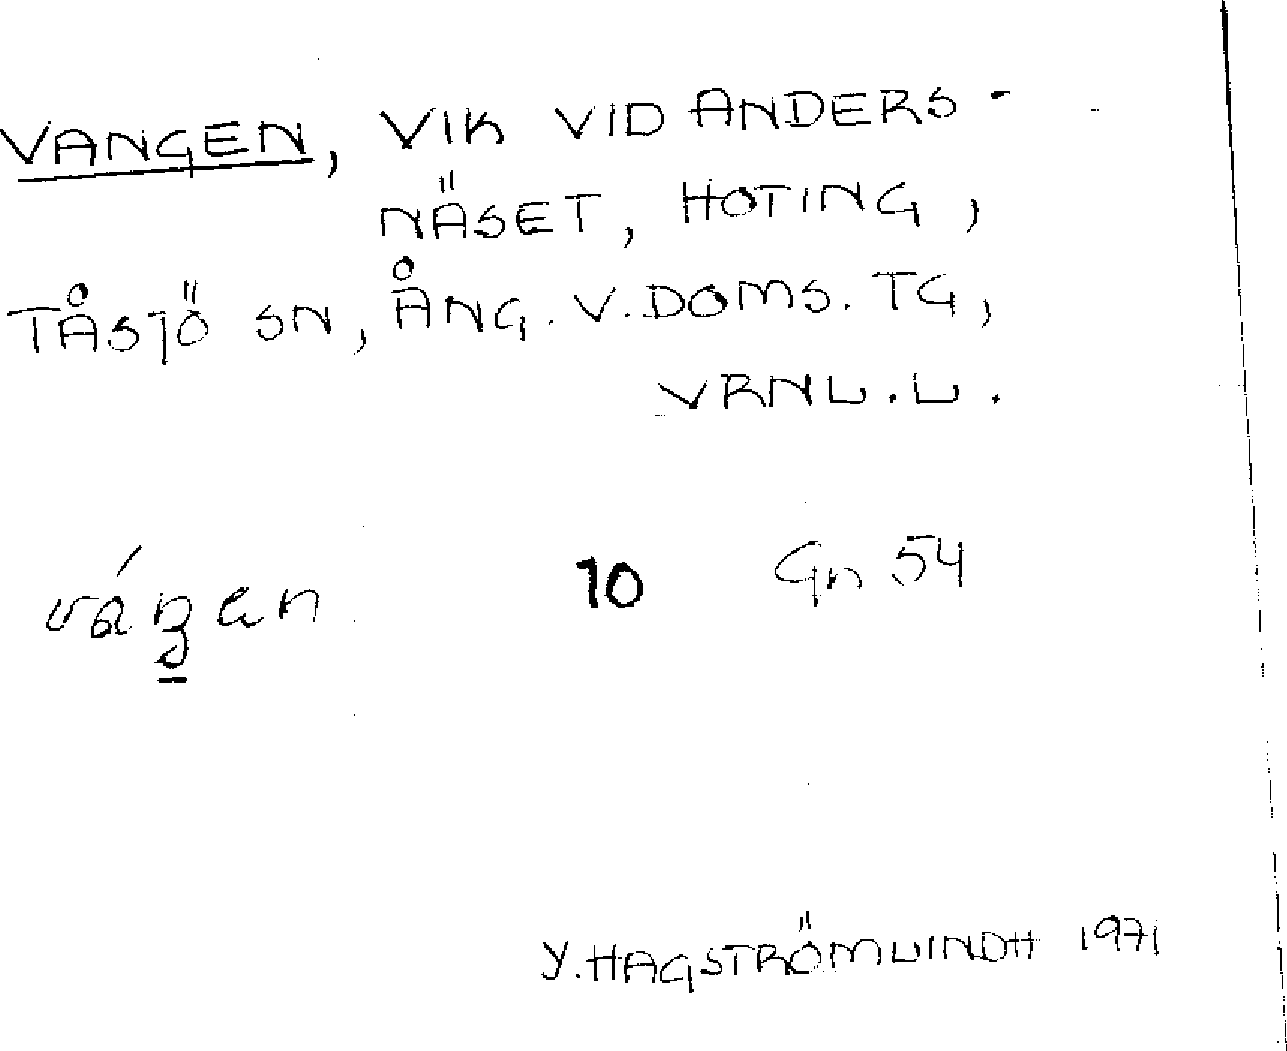 VANGEN, VIK VID ANDERS-
NÄSET, HOTING,
TÅSJÖ SN, ÅNG. V. DOMS. TG,
VRNL.L.
10 Gn 54
Y. HAGSTRÖMLINDH 1971